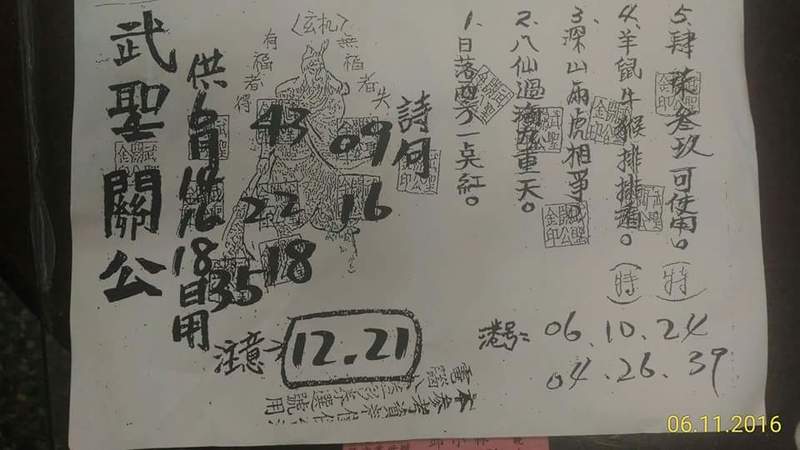 武聖關公
供6月14.16.18日用
〈玄机〉
有福者得
無福者失
43
09
22
16
35
18
注意
12.21
詩句
1.日落西方一点紅。
2.八仙過海
重天。
3.深山兩虎相爭。
4.羊鼠牛猴排排
。(特)
5.肆柒叁玖可使用。(特)
港号=06.10.24
04.26.39
本參考資
選號用
06.11.2016